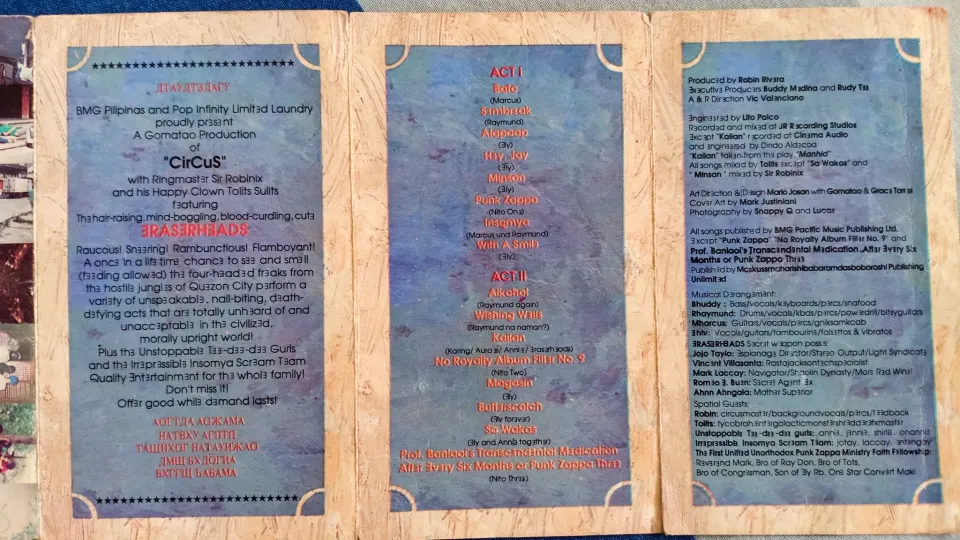 ★★★★★★★★★★★★★★★★★★★★★★★★
ДТАУДТЯДАГУ
BMG Pilipinas and Pop Infinity LimitƎd Laundry
proudly prƎsƎnt
A Gomatao Production
of
"CirCuS"
with RingmastƎr Sir Robinix
and his Happy Clown Tolits Sulits
fƎaturing
ThƎ hair-raising, mind-boggling, blood-curdling, cutƎ
ƎRASƎRHƎADS!
Raucous! SnƎƎring! Rambunctious! Flamboyant!
A oncƎ in a lifƎtimƎ chancƎ to sƎƎ and smƎll
(fƎƎding allowƎd) thƎ four-hƎadƎd frƎaks from
thƎ hostilƎ junglƎs of QuƎzon City pƎrform a
variƎty of unspƎakablƎ, nail-biting, dƎath-
dƎfying acts that arƎ totally unhƎard of and
unaccƎptablƎ in thƎ civilizƎd,
morally upright world!
Plus thƎ UnstoppablƎ TƎƎ-dƎƎ-dƎƎ Gurls
and thƎ IrrƎprƎssiblƎ Insomya ScrƎam TƎam
Quality ƎntƎrtainmƎnt for thƎ wholƎ family!
Don't miss it!
OffƎr good whilƎ dƎmand lasts!
АОГТДА АОЖАМА
★★★★★★★★★★★★★★★★★★★★★★★★
ACT I
Bato
(Marcus)
SƎmbrƎak
(Raymund)
Alapaap
(Ǝly)
HƎy, Jay
(Ǝly)
Minsan
(Ǝly)
Punk Zappa
(Nito OnƎ)
Insomya
(Marcus und Raymund)
With A SmilƎ
(Ǝly)
ACT II
Alkohol
(Raymund again)
Wishing WƎlls
(Raymund na naman?)
Kailan
No Royalty Album FillƎr No. 9
(Nito Two)
Magasin
(Ǝly)
ButtƎrscotch
(Ǝly forƎvƎr)
Sa Wakas
(Ǝly and AnniƎ togƎthƎr)
Prof. Banlaoi's TranscƎndƎntal MƎdication
AftƎr ƎvƎry Six Months or Punk Zappa ThrƎƎ
(Nito ThrƎƎ)
ProducƎd by Robin RivƎra
ƎxƎcutivƎ ProducƎrs Buddy MƎdina and Rudy TƎƎ
A & R DirƎction Vic ValƎnciano
ƎnginƎƎrƎd by Lito Palco
RƎcordƎd and mixƎd at JR RƎcording Studios
ƎxcƎpt "Kailan" rƎcordƎd at CinƎma Audio
and ƎnginƎƎrƎd by Dindo Aldecoa
"Kailan" takƎn from thƎ play "Manhid"
All songs mixƎd by Tolits ƎxcƎpt "Sa Wakas" and
" Minsan " mixƎd by Sir Robinix
Art DirƎction & DƎsign Mario Joson with Gomatao & GracƎ
CovƎr Art by Mark Justiniani
Photography by Snappy Q and Lucas
All songs publishƎd by BMG Pacific Music Publishing Ltd.
ƎxcƎpt "Punk Zappa" "No Royalty Album FillƎr No. 9" and
Prof. Banlaoi's TranscƎndƎntal MƎdication AftƎr ƎvƎry Six
Months or Punk Zappa ThrƎƎ
PublishƎd by Publishing
UnlimitƎd
Musical DƎrangƎmƎnt:
Bhuddy : Bass/vocals/kƎyboards/pƎrcs/snafood
Rhaymund: Drums/vocals/kbds/pƎrcs/powƎrdrill/bitsyguitars
Mharcus: Guitars/vocals/pƎrcs/gniksamkcab
Ǝhlv: Vocals/guitars/tambourinƎ/falsƎttos & vibratos
ƎRASƎRHƎADS SƎcrƎt wƎapon possƎ:
Jojo Taylo: ƎspionagƎ DirƎctor/StƎrƎo Output/Light SyndicatƎ
VincƎnt Villasanta:
Mark Laccay: Navigator/Shaolin Dynasty/Mora RƎd WinƎ!
RomƎo Ǝ. BuƎn: SƎcrƎt AgƎnt Ǝx
Ahnn Ahngala: MathƎr SupƎrior
Spatial GuƎsts:
Robin: circusmastƎr/backgroundvocals/pƎrcs/fƎƎdback
UnstoppablƎ TƎƎ-dƎƎ-dƎƎ gurls:
IrrƎprƎssiblƎ Insomya ScrƎam TƎam: jotay, laccay,
ThƎ First UnifiƎd Unorthodox Punk Zappa Ministry Faith FƎllowship:
RƎvƎrƎnd Mark, Bro of Ray Don, Bro of Tots,
Bro of CongrƎsman, Son of Ǝly Rb, OnƎ Star ConvƎrt Maki